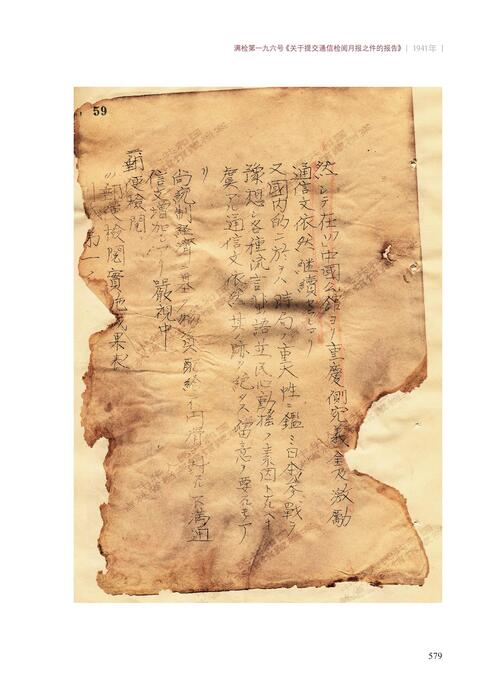 满检第一九六号《关于提交通信检阅月报之件的报告》 | 1941年 |
59
然シテ在ソ中國公館ヨリ重慶側完義金及激勵
通信文依然継續セラレアリ
又國内的ニ於テハ時局ノ重大性ニ鑑ミ日本参戰ヲ
豫想シ各種流言
並民心動揺ノ素因トナルヘキ
通信文依然其ノ跡ヲ絶タス留意ノ要アルモノアリ
尚統制経濟ニ基ク物資配給ノ円滑
不満通
信文増加シアリ嚴視中
郵便檢閲
郵便檢閲實施成果
第一
579